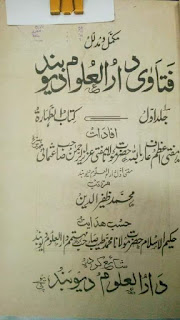 مکمل و مدلل
فتاویٰ دارالعلوم دیوبند
جلد اوّل کتاب الطہارۃ
افادات
مفتی اعظم عارف باللہ حضرت مولانا مفتی عزیز الرحمن صاحب عثمانی
مرتب
محمد ظفیر الدین
حسب ہدایت
حکیم الاسلام حضرت مولانا محمد طیب صاحب مہتمم دارالعلوم دیوبند
شائع کردہ
دارالعلوم دیوبند